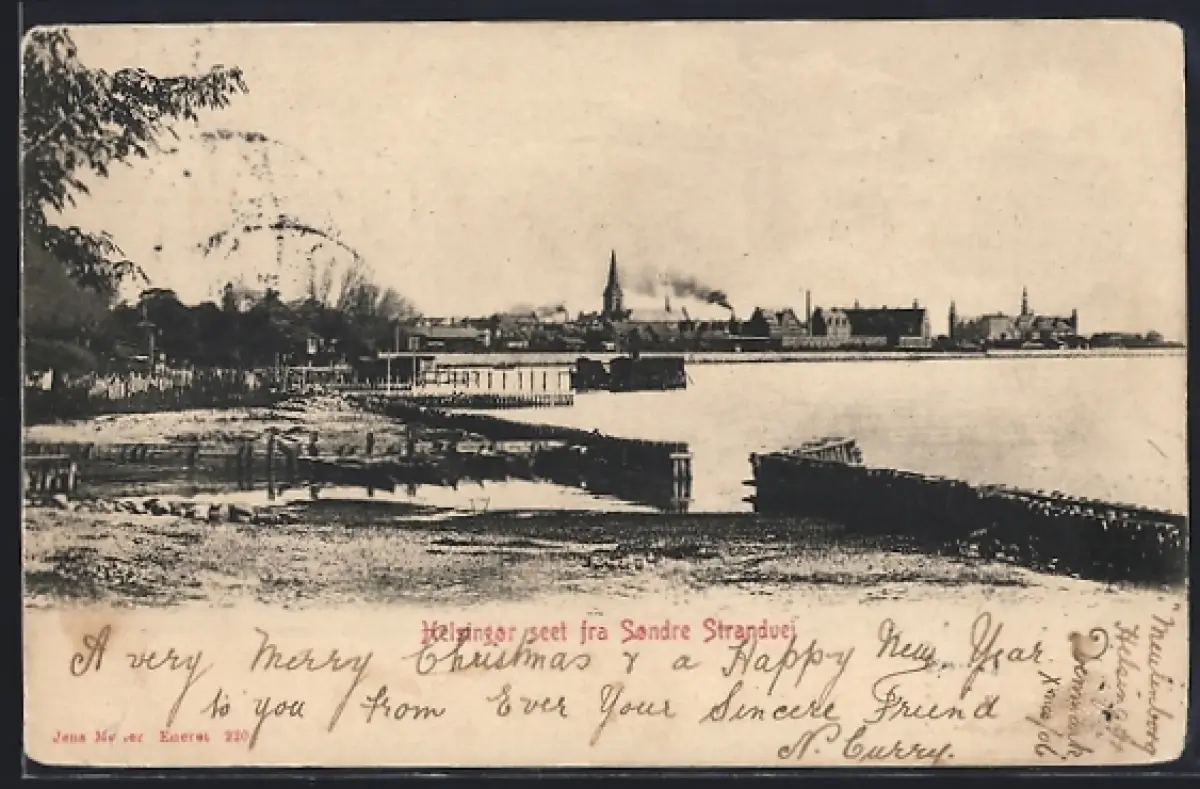 Helsingør seet fra Søndre Strandvej
A very Merry Christmas & a Happy New Year
to you from Ever Your Sincere Friend
N. Curry.
Jens Møller Eneret 220
Helsingør
Denmark
Xmas/06